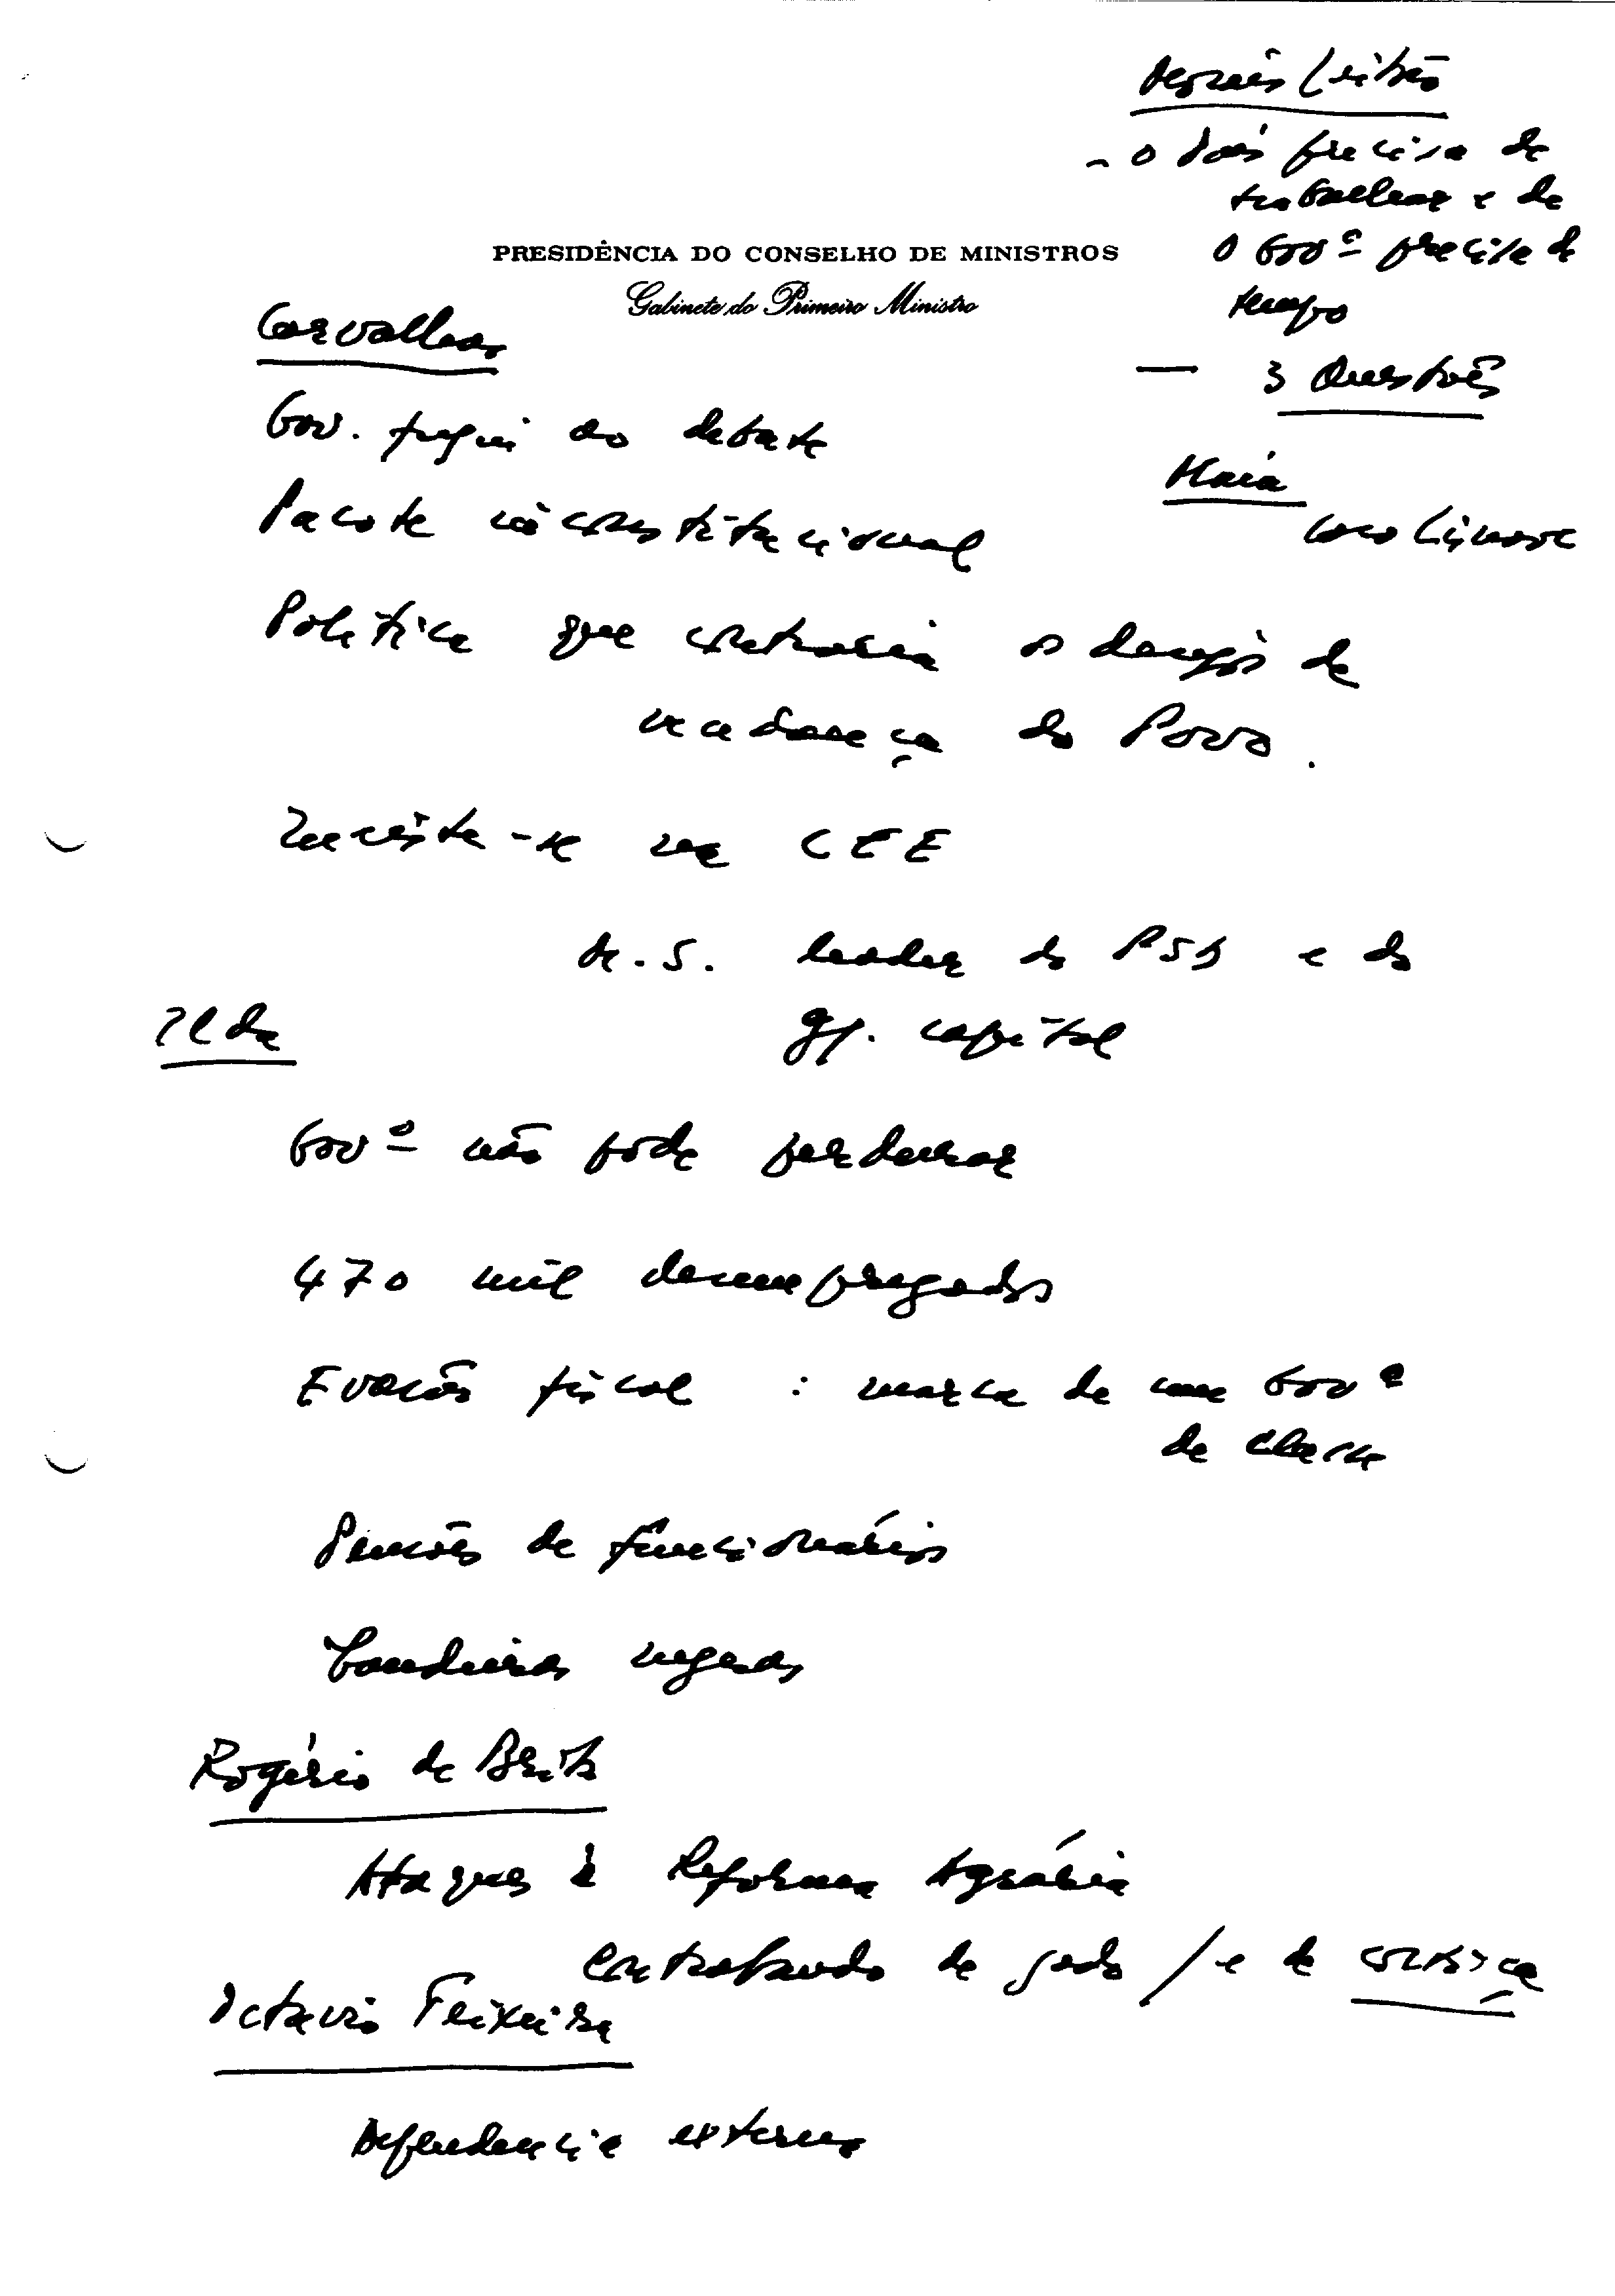 Morais Leitão
- O País precisa de
trabalhar e de
O Govº precisa de
tempo
— 3 Questões
Maia
PRESIDÊNCIA DO CONSELHO DE MINISTROS
Gabinete do Primeiro Ministro
Carvalhas
Gov. fugiu ao debate
Pacote inconstitucional
Política que contraria os desejos de
mudança do Povo.
Insiste-se na CEE
M.S. leader do PSD e do
gr. capital
Ilda
Govº não pode perdurar
470 mil desempregados
Evasão fiscal : marca de um Govº
de classe
Pensões de funcionários
bandeiras negras
Rogério de Brito
Ataques à Reforma Agrária
contrabando de gado / e de cortiça
Octávio Teixeira
Dependência externa